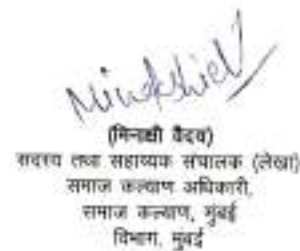 Minakshi V
(मिनाक्षी वैदव)
सदस्य तथा सहाय्यक संचालक (लेखा)
समाज कल्याण अधिकारी,
समाज कल्याण, मुंबई
विभाग, मुंबई